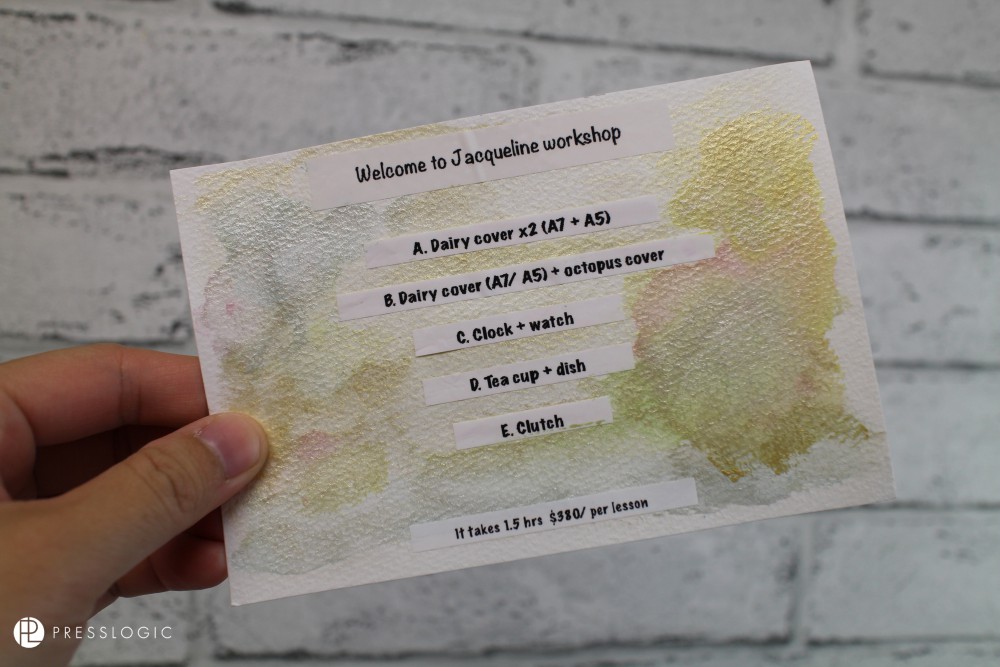 Welcome to Jacqueline workshop
A. Dairy cover x2 (A7 + A5)
B. Dairy cover (A7/ A5) + octopus cover
C. Clock + watch
D. Tea cup + dish
E. Clutch
It takes 1.5 hrs $380/ per lesson
PRESSLOGIC